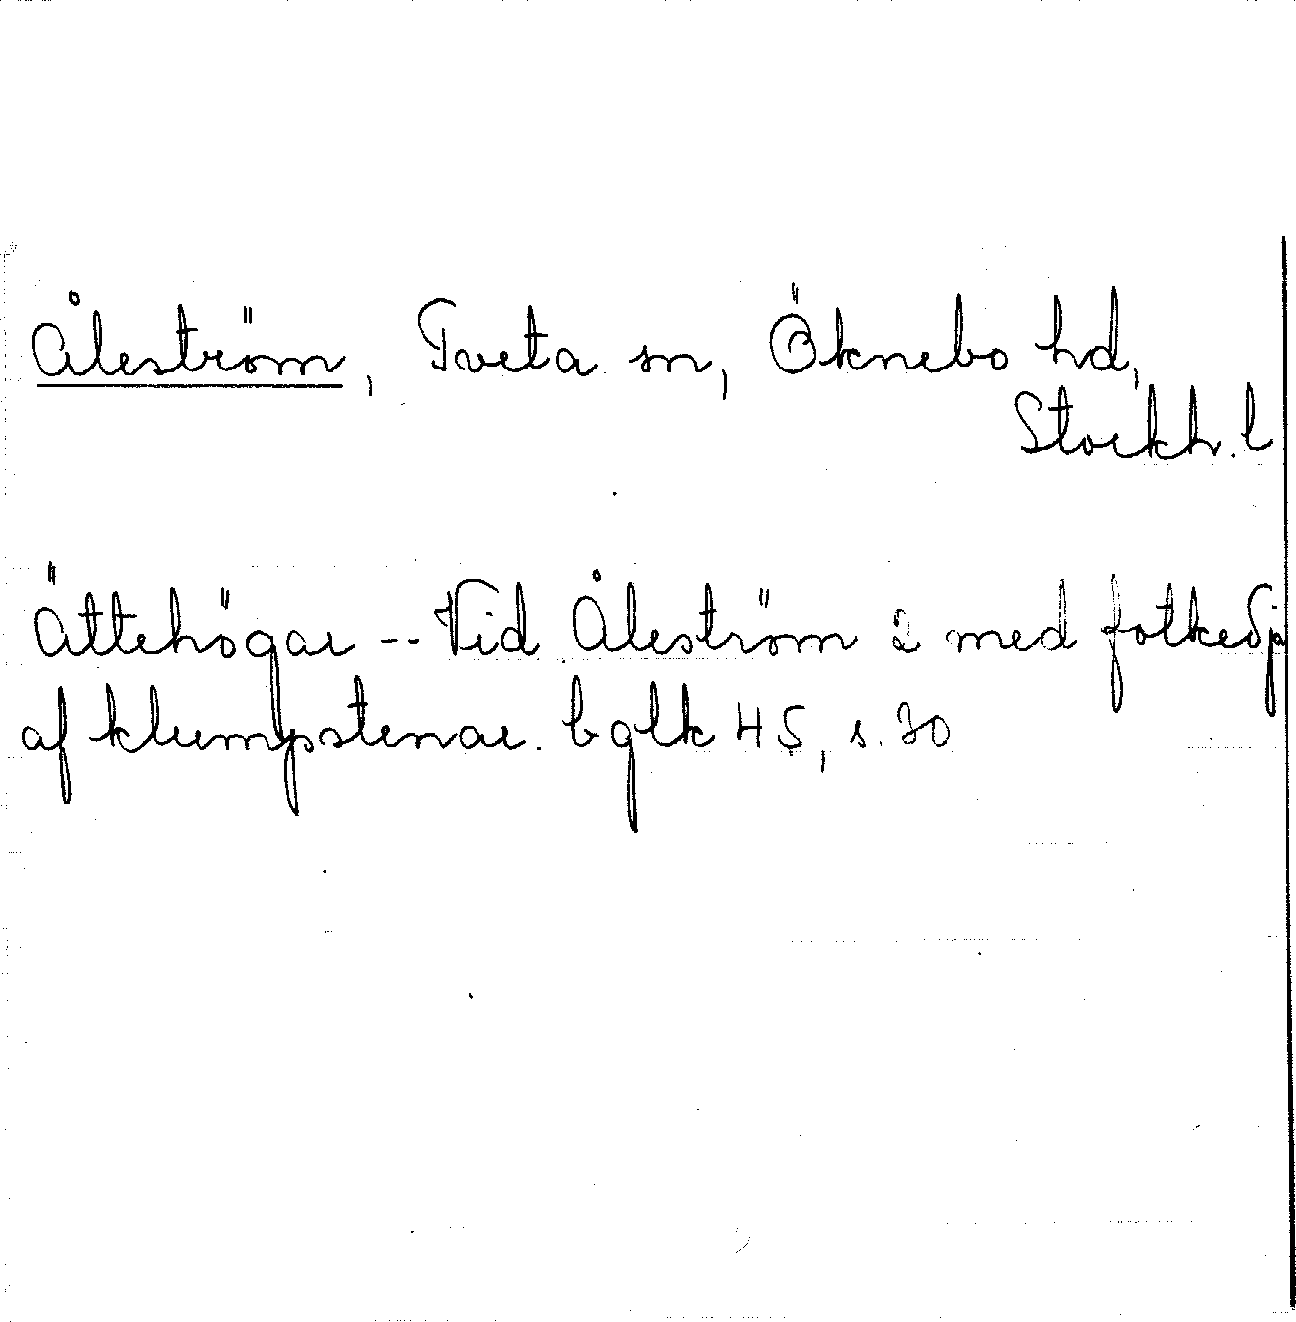 Åleström, Tveta sn, Öknebo hd,
Stockh. l
Ättehögar -- Vid Åleström 2 med fotkedja
af klumpstenar. bglk 45, s. 30